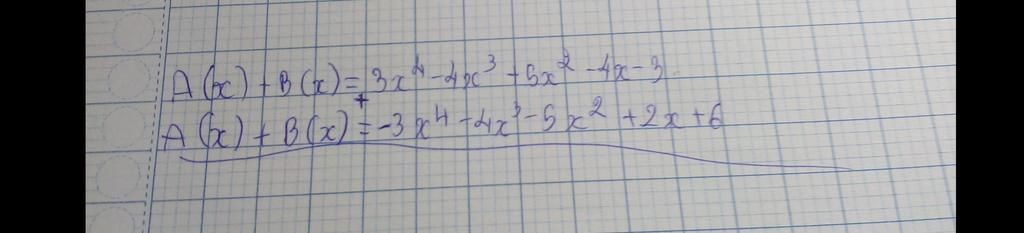 A(x) + B(x) = 3x⁴ - 4x³ + 5x² - 4x - 3
+
A(x) + B(x) = -3x⁴ - 4x³ - 5x² + 2x + 6